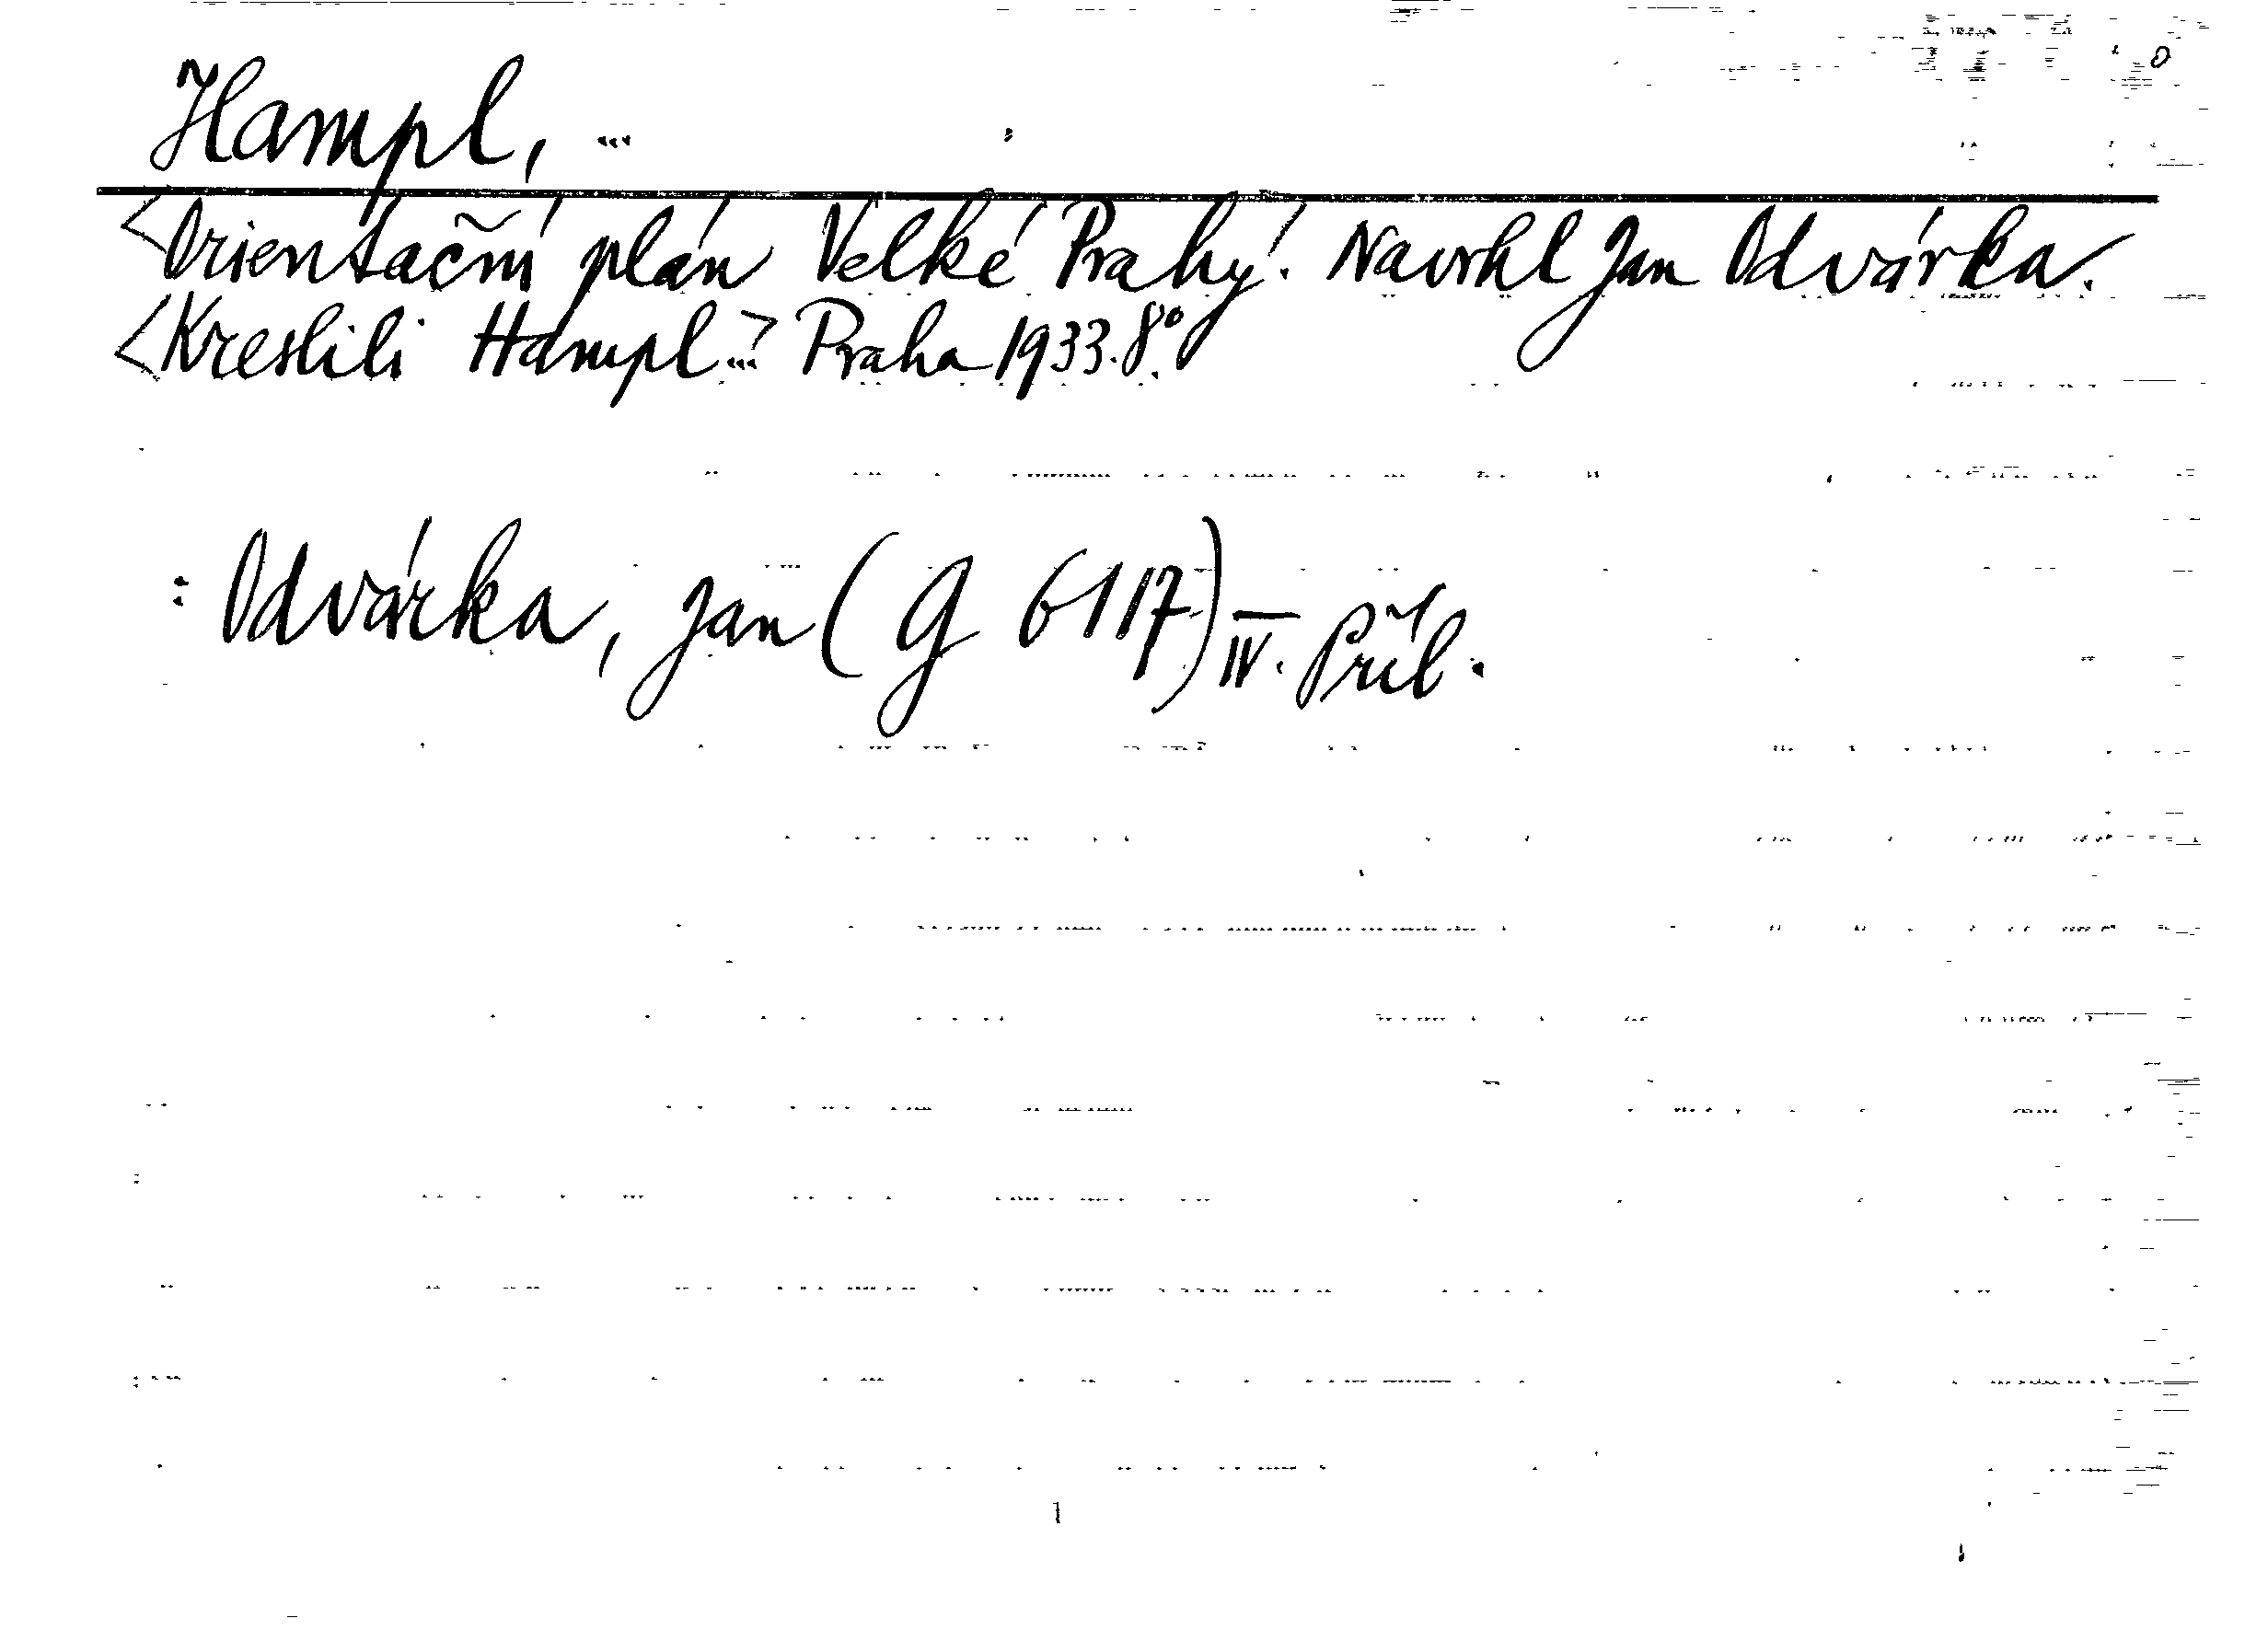 Hampl, ...
<Orientační plán Velké Prahy. Navrhl Jan Odvárka.
<Kreslili Hampl...> Praha 1933. 8°.
: Odvárka, Jan (G 6117) IV. Příl.